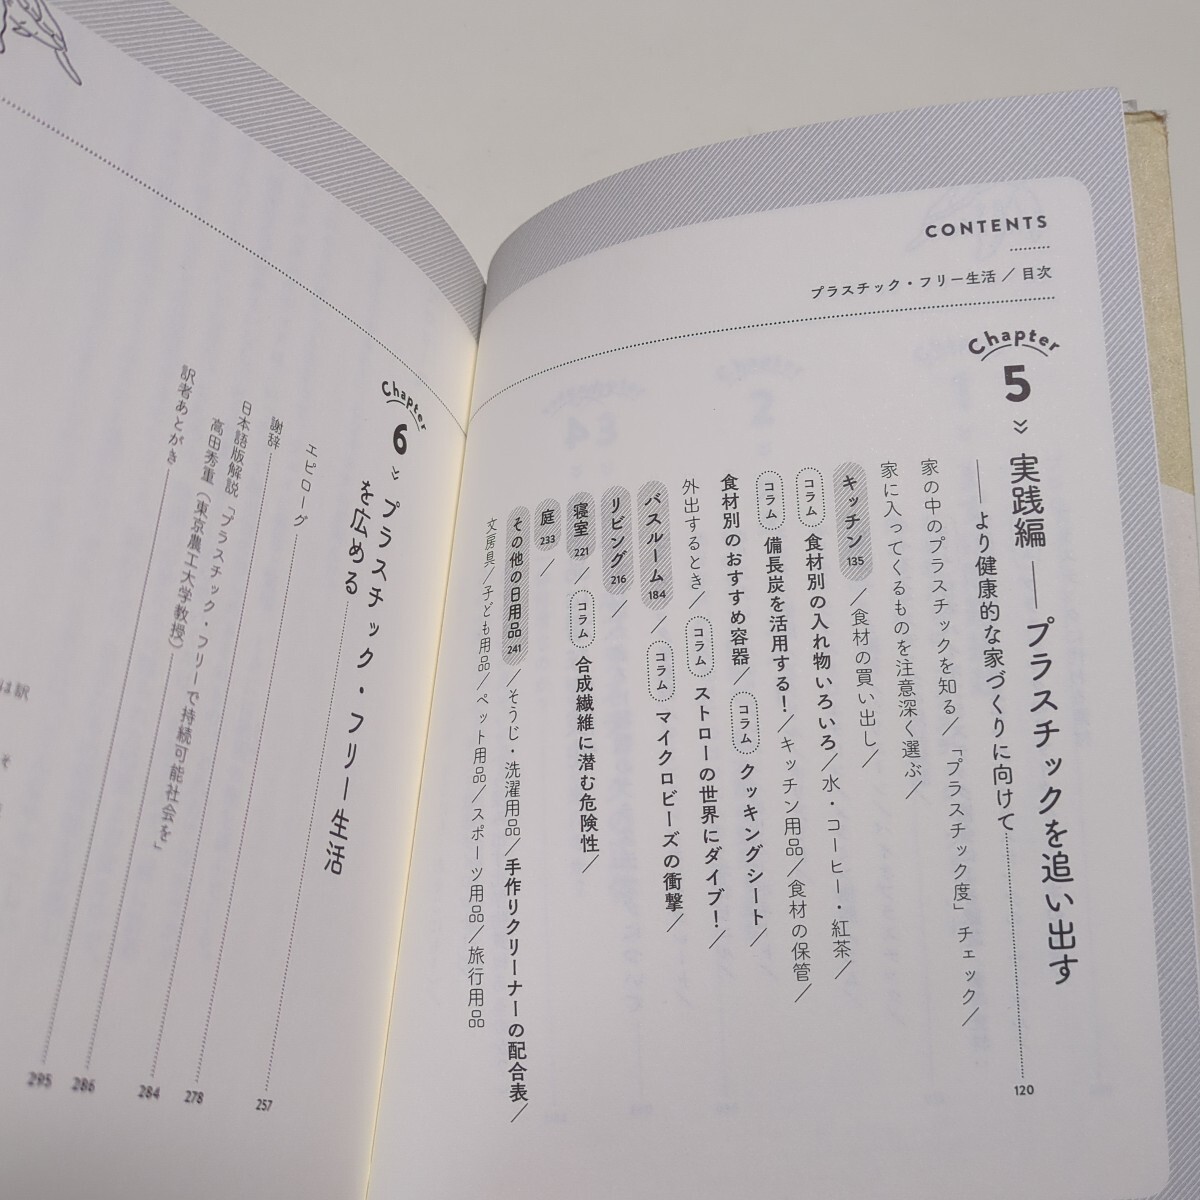 CONTENTS
プラスチック・フリー生活／目次
Chapter
5
実践編――プラスチックを追い出す
――より健康的な家づくりに向けて
120
家の中のプラスチックを知る／「プラスチック度」チェック／
家に入ってくるものを注意深く選ぶ／
キッチン 135 ／食材の買い出し／
コラム 食材別の入れ物いろいろ／水・コーヒー・紅茶／
コラム 備長炭を活用する！／キッチン用品／食材の保管／
食材別のおすすめ容器／コラム クッキングシート／
外出するとき／コラム ストローの世界にダイブ！／
バスルーム 184 ／コラム マイクロビーズの衝撃／
リビング 216 ／
寝室 221 ／コラム 合成繊維に潜む危険性／
庭 233 ／
その他の日用品 241 ／そうじ・洗濯用品／手作りクリーナーの配合表／
文房具／子ども用品／ペット用品／スポーツ用品／旅行用品
Chapter
6
プラスチック・フリー生活
を広める
257
エピローグ
278
謝辞
284
日本語版解説「プラスチック・フリーで持続可能社会を」
高田秀重（東京農工大学教授）
286
訳者あとがき
295
は訳